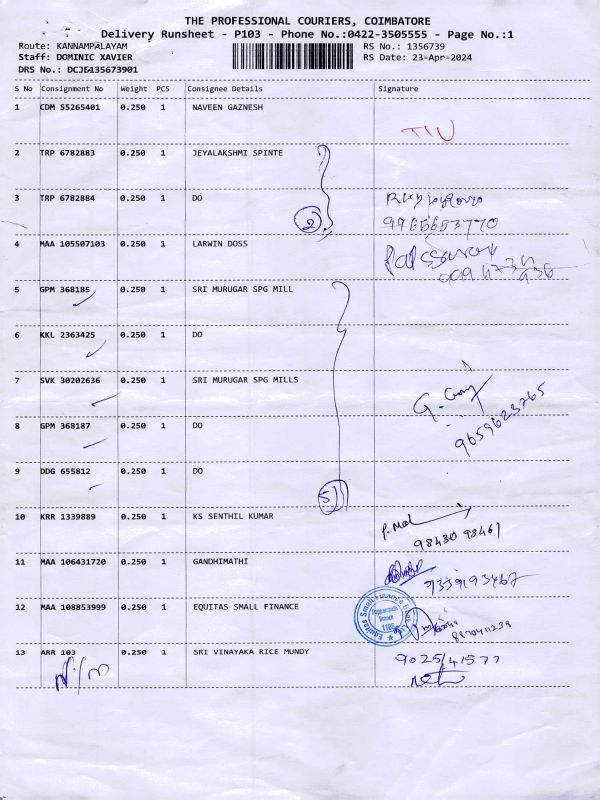 THE PROFESSIONAL COURIERS, COIMBATORE
Delivery Runsheet - P103 - Phone No.:0422-3505555 - Page No.:1
Route: KANNAMPALAYAM RS No.: 1356739
Staff: DOMINIC XAVIER RS Date: 23-Apr-2024
DRS No.: DCJE135673901
S No Consignment No Weight PCS Consignee Details Signature
1 CDM 55265401 0.250 1 NAVEEN GAZNESH
2 TRP 6782883 0.250 1 JEYALAKSHMI SPINTE
3 TRP 6782884 0.250 1 DO
2
9965653770
4 MAA 105507103 0.250 1 LARWIN DOSS
5 GPM 368185 0.250 1 SRI MURUGAR SPG MILL
6 KKL 2363425 0.250 1 DO
7 SVK 30202636 0.250 1 SRI MURUGAR SPG MILLS
8 GPM 368187 0.250 1 DO
9659623765
9 DDG 655812 0.250 1 DO
5
10 KRR 1339889 0.250 1 KS SENTHIL KUMAR
98430 98461
11 MAA 106431720 0.250 1 GANDHIMATHI
9339193467
12 MAA 108853999 0.250 1 EQUITAS SMALL FINANCE
Equitas Small Finance
Branch
1186
8870411239
13 ARR 103 0.250 1 SRI VINAYAKA RICE MUNDY
9025141577